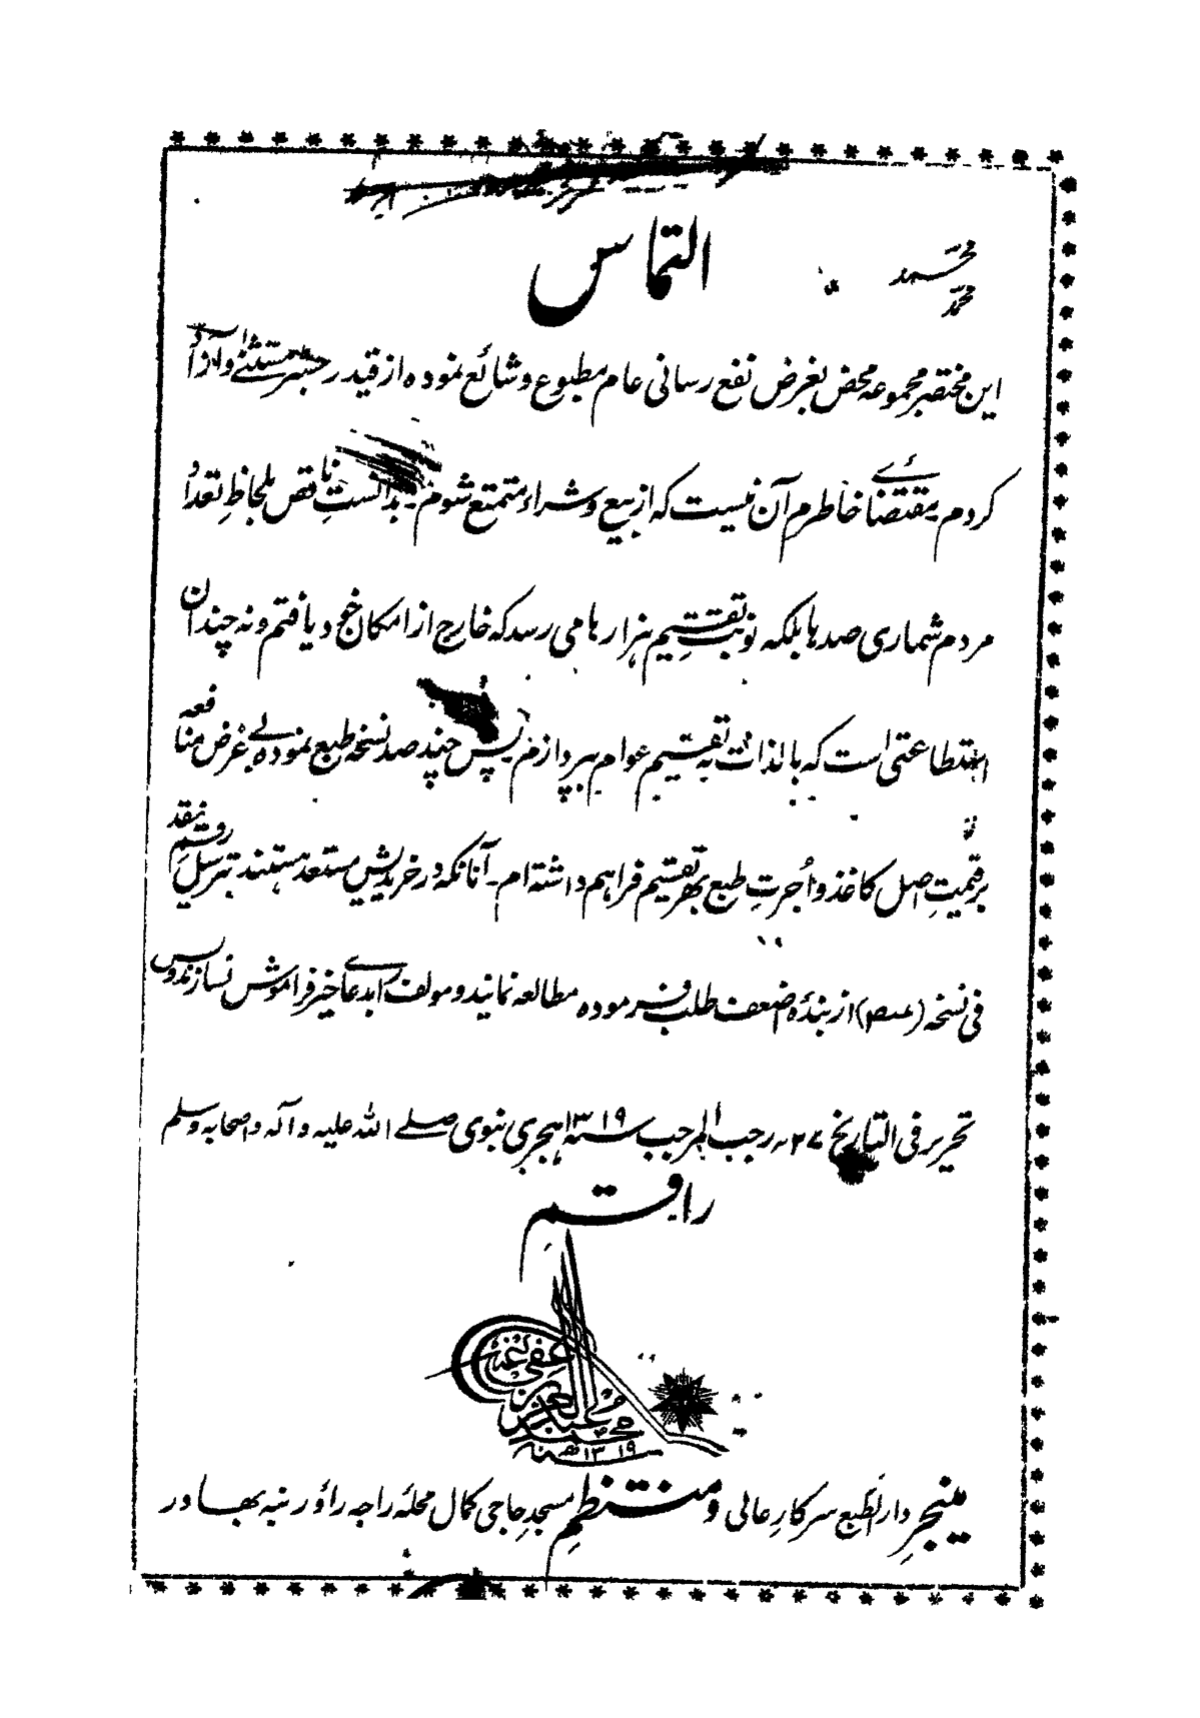 التماس
محمد
محمد
این مختصر مجموعه محض بغرض نفع رسانی عام مطبوع و شائع نموده از قید رجسٹر مستثنے و آزاد
کردم۔ مقتضائے خاطرم آن نیست که از بیع و شراء متمتع شوم۔ بدانست ناقص بلحاظِ تعداد
مردم شماری صدها بلکه نوبتِ تقسیم هزارها می رسد که خارج از امکان خود یافتم و نه چندان
استطاعتی است که بالذات به تقسیم عوام بپردازم پس چند صد نسخه طبع نموده بے غرض منافعه
بر قیمتِ اصل کاغذ و اُجرتِ طبع بهر تقسیم فراهم داشته ام۔ آنانکه در خریدیش مستعد هستند بترسیلِ رقمِ نقد
فی نسخه ( ) از بندهٔ اضعف طلب فرموده مطالعه نمایند و مولف را بدعاءِ خیر فراموش نسازند و بس
تحریر فی التاریخ ۲۷؍ رجب المرجب سنه ۱۳۱۹ هجری نبوی صلے الله علیه و آله و اصحابه وسلم
راقم
محمد عبد العزیز عفی عنه
سنه ۱۳۱۹ ھ
مینجرِ دار الطبع سرکارِ عالی و منتظمِ مسجدِ حاجی کمال محلهٔ راجه راؤ رنبه بهادر